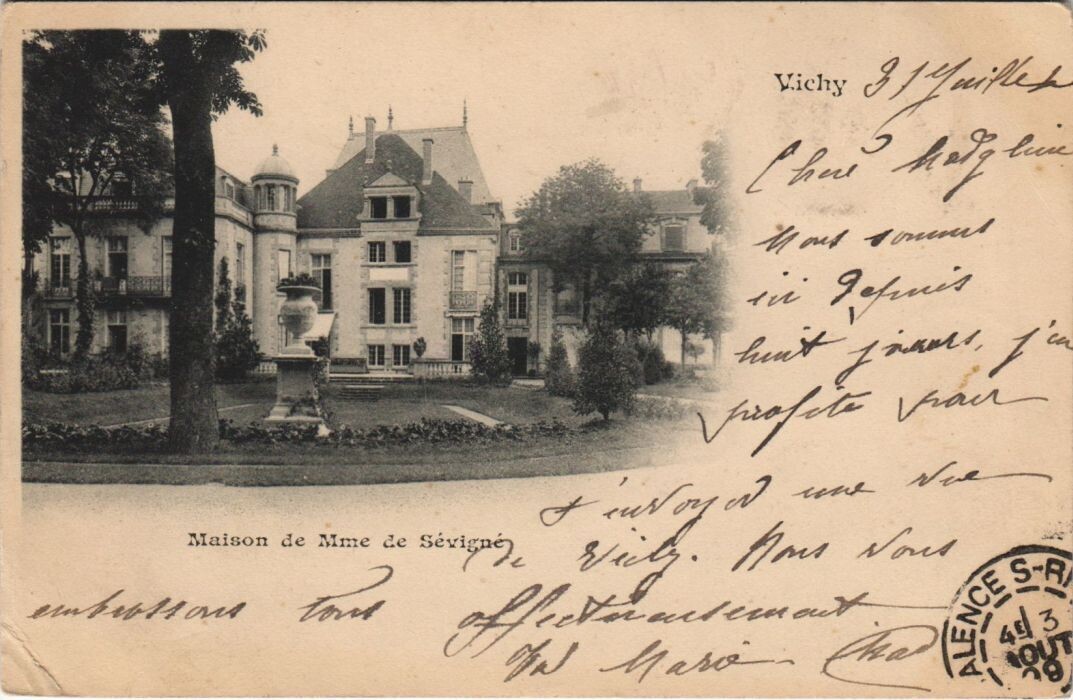 Vichy 31 Juillet
Chère
Nous sommes
ici depuis
huit jours, j'en
profite pour
t'envoyer une vue
de Vichy. Nous vous
embrassons tous affectueusement
Marie
Maison de Mme de Sévigné
ALENCE S-R
4E 3
AOUT